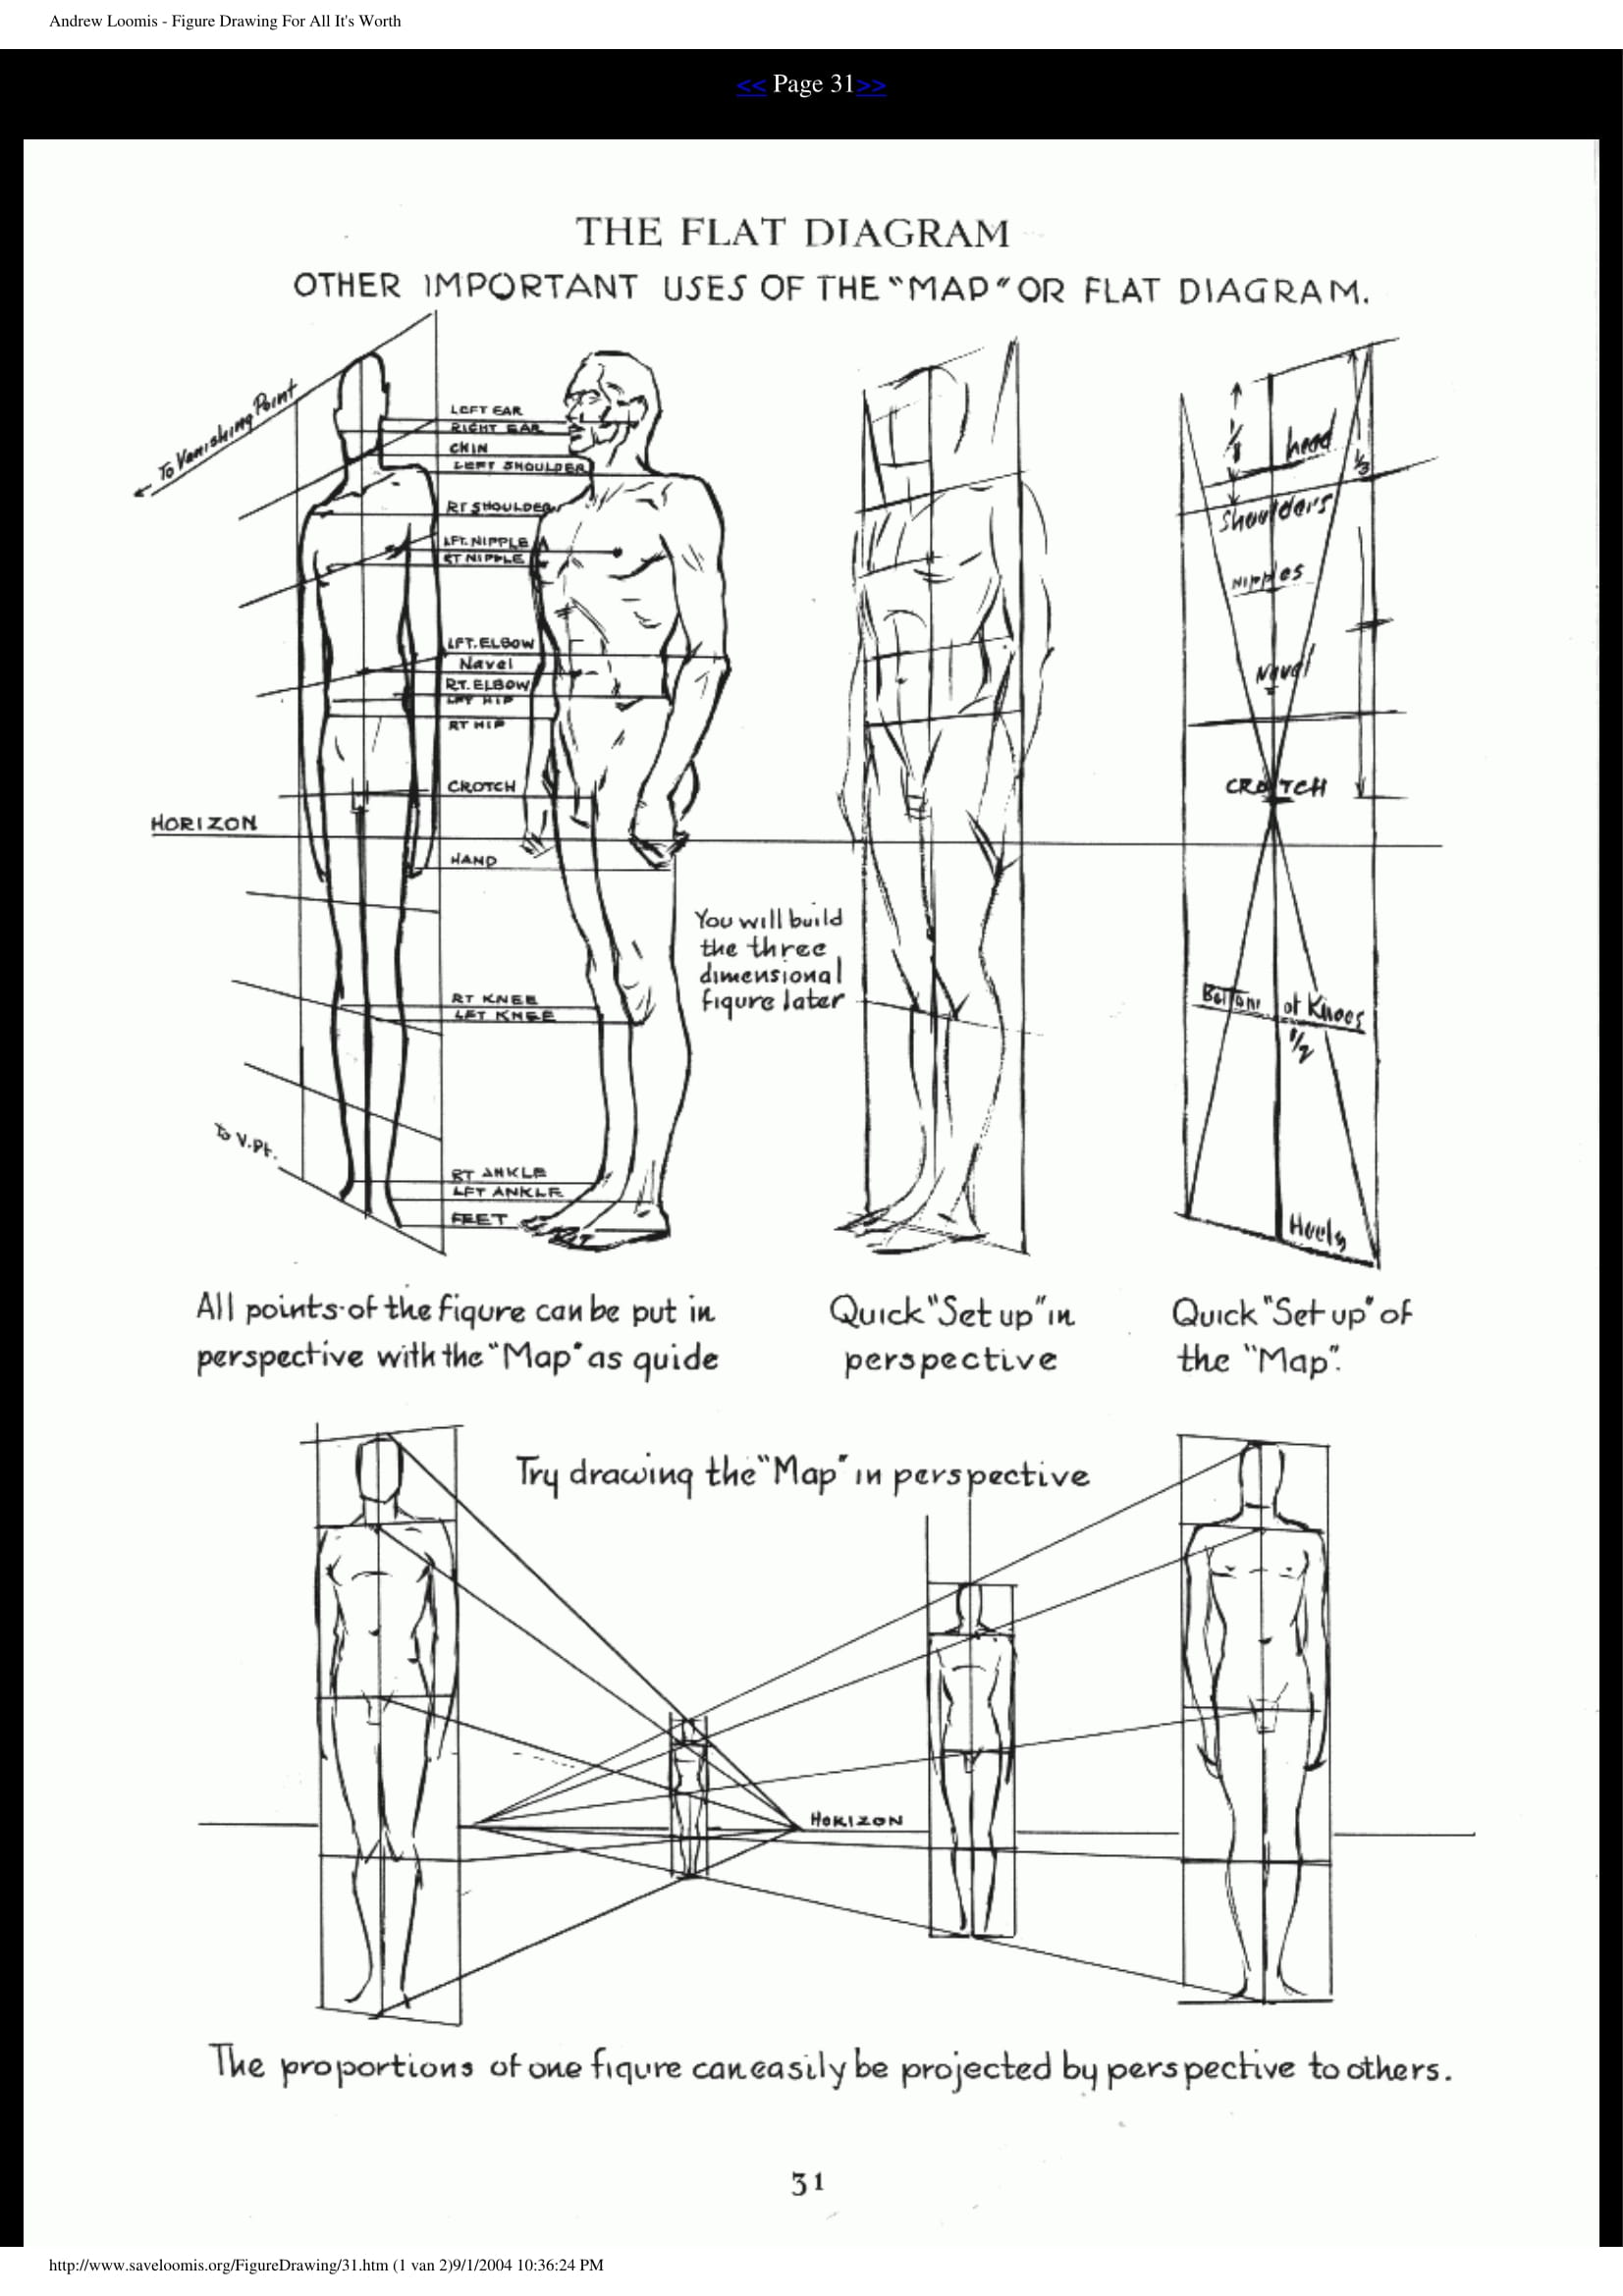 Andrew Loomis - Figure Drawing For All It's Worth
<< Page 31>>
THE FLAT DIAGRAM
OTHER IMPORTANT USES OF THE "MAP" OR FLAT DIAGRAM.
To Vanishing Point
LEFT EAR
RIGHT EAR
CHIN
LEFT SHOULDER
RT SHOULDER
LFT. NIPPLE
RT NIPPLE
LFT. ELBOW
Navel
RT. ELBOW
LFT HIP
RT HIP
CROTCH
HORIZON
HAND
RT KNEE
LFT KNEE
To V.Pt.
RT ANKLE
LFT ANKLE
FEET
You will build
the three
dimensional
figure later
1/8
head
1/3
Shoulders
Nipples
Navel
CROTCH
Bottom of Knees
1/2
Heels
All points of the figure can be put in
perspective with the "Map" as guide
Quick "Set up" in
perspective
Quick "Set up" of
the "Map".
Try drawing the "Map" in perspective
HORIZON
The proportions of one figure can easily be projected by perspective to others.
31
http://www.saveloomis.org/FigureDrawing/31.htm (1 van 2)9/1/2004 10:36:24 PM